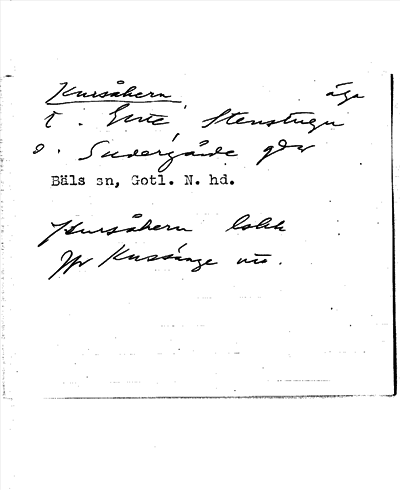 Kursåkern äga
t. Ente, Stenstugu
o. Sudergårde gdr
Bäls sn, Gotl. N. hd.
Kursåkern lokk
Jfr Kussänge nio.